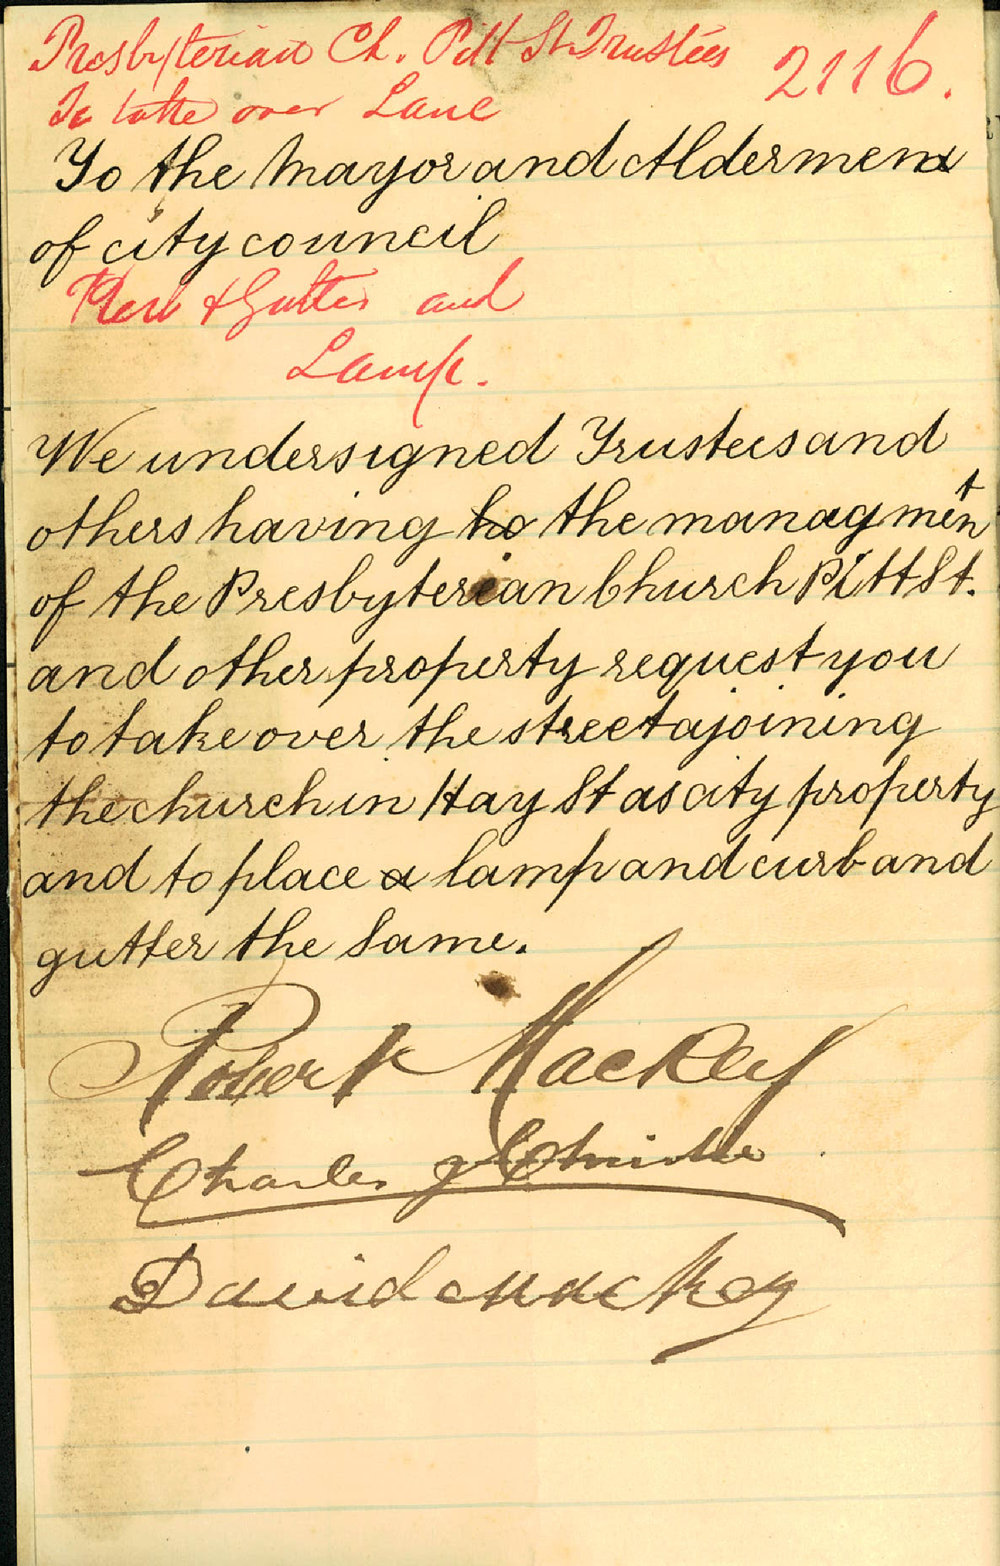 Presbyterian Ch. Pitt St. Trustees 2116.
To take over Lane
To the Mayor and Aldermen
of city council
Kerb & Gutter and
Lamp.
We undersigned Trustees and
others having ho the managment
of the Presbyterian Church Pitt St.
and other property request you
to take over the street ajoining
the church in Hay St as city property
and to place a lamp and curb and
gutter the same.
Robert Mackey
Charles J Christie
David Mackey